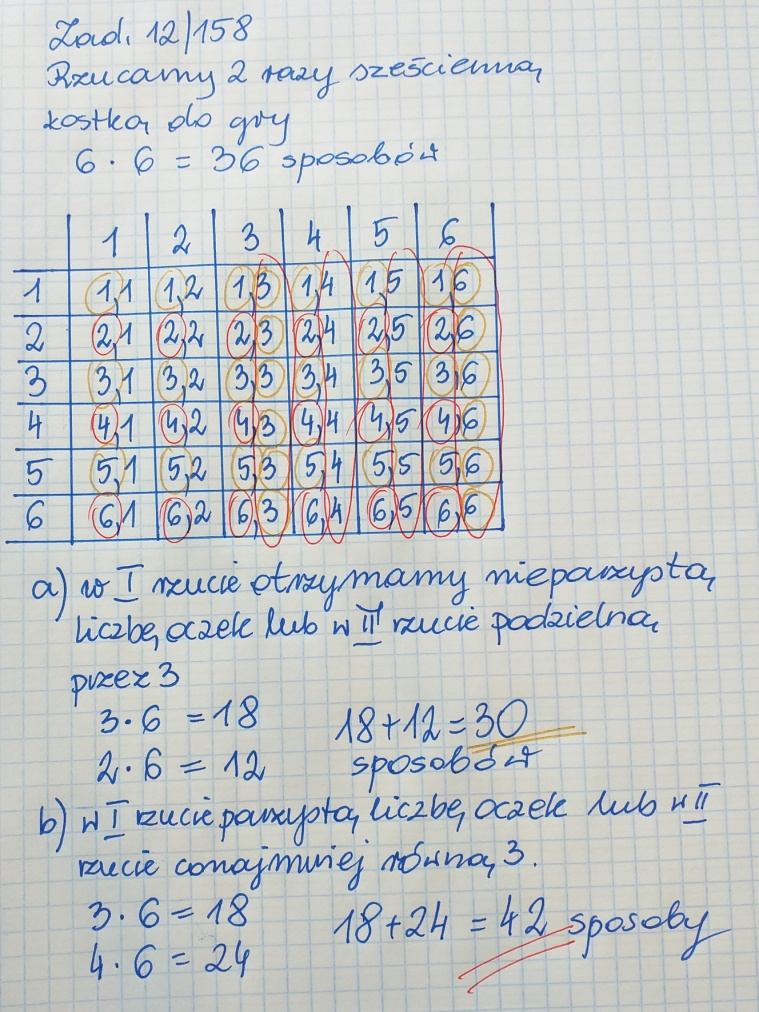 Zad. 12/158
Rzucamy 2 razy sześcienną
kostką do gry
6 · 6 = 36 sposobów
1 2 3 4 5 6
1 1,1 1,2 1,3 1,4 1,5 1,6
2 2,1 2,2 2,3 2,4 2,5 2,6
3 3,1 3,2 3,3 3,4 3,5 3,6
4 4,1 4,2 4,3 4,4 4,5 4,6
5 5,1 5,2 5,3 5,4 5,5 5,6
6 6,1 6,2 6,3 6,4 6,5 6,6
a) w I rzucie otrzymamy nieparzystą
liczbę oczek lub w II rzucie podzielną
przez 3
3 · 6 = 18 18 + 12 = 30
2 · 6 = 12 sposobów
b) w I rzucie parzystą liczbę oczek lub w II
rzucie conajmniej równą 3.
3 · 6 = 18 18 + 24 = 42 sposoby
4 · 6 = 24